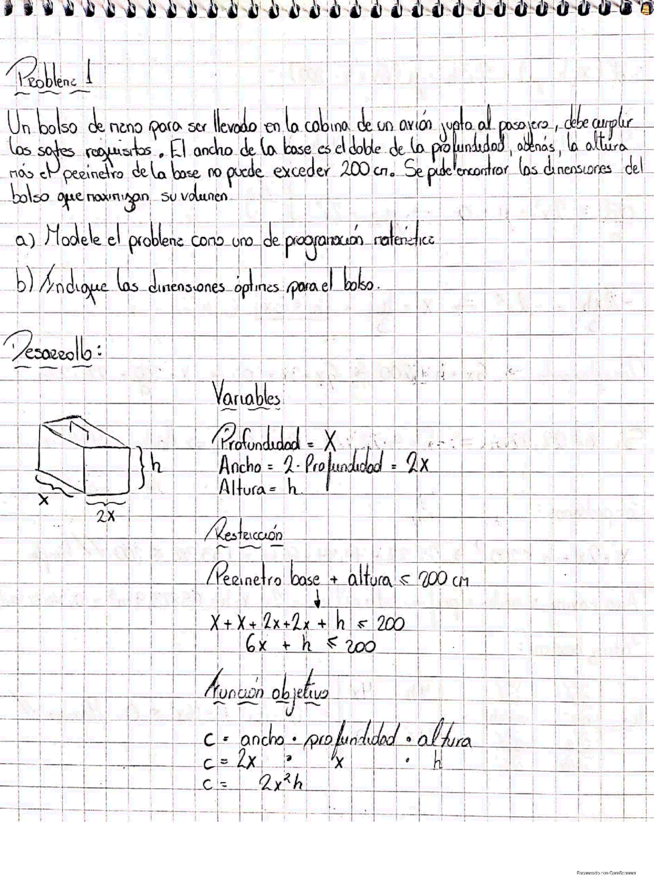 Problema 1
Un bolso de mano para ser llevado en la cabina de un avión junto al pasajero, debe cumplir
los sgtes requisitos. El ancho de la base es el doble de la profundidad, además, la altura
más el perímetro de la base no puede exceder 200 cm. Se pide encontrar las dimensiones del
bolso que maximizan su volumen
a) Modele el problema como uno de programación matemática
b) Indique las dimensiones óptimas para el bolso.
Desarrollo:
Variables
Profundidad = X
Ancho = 2 · Profundidad = 2x
Altura = h
h
x
2x
Restricción
Perímetro base + altura ≤ 200 cm
↓
x + x + 2x + 2x + h ≤ 200
6x + h ≤ 200
Función objetivo
C = ancho · profundidad · altura
C = 2x · x · h
C = 2x²h